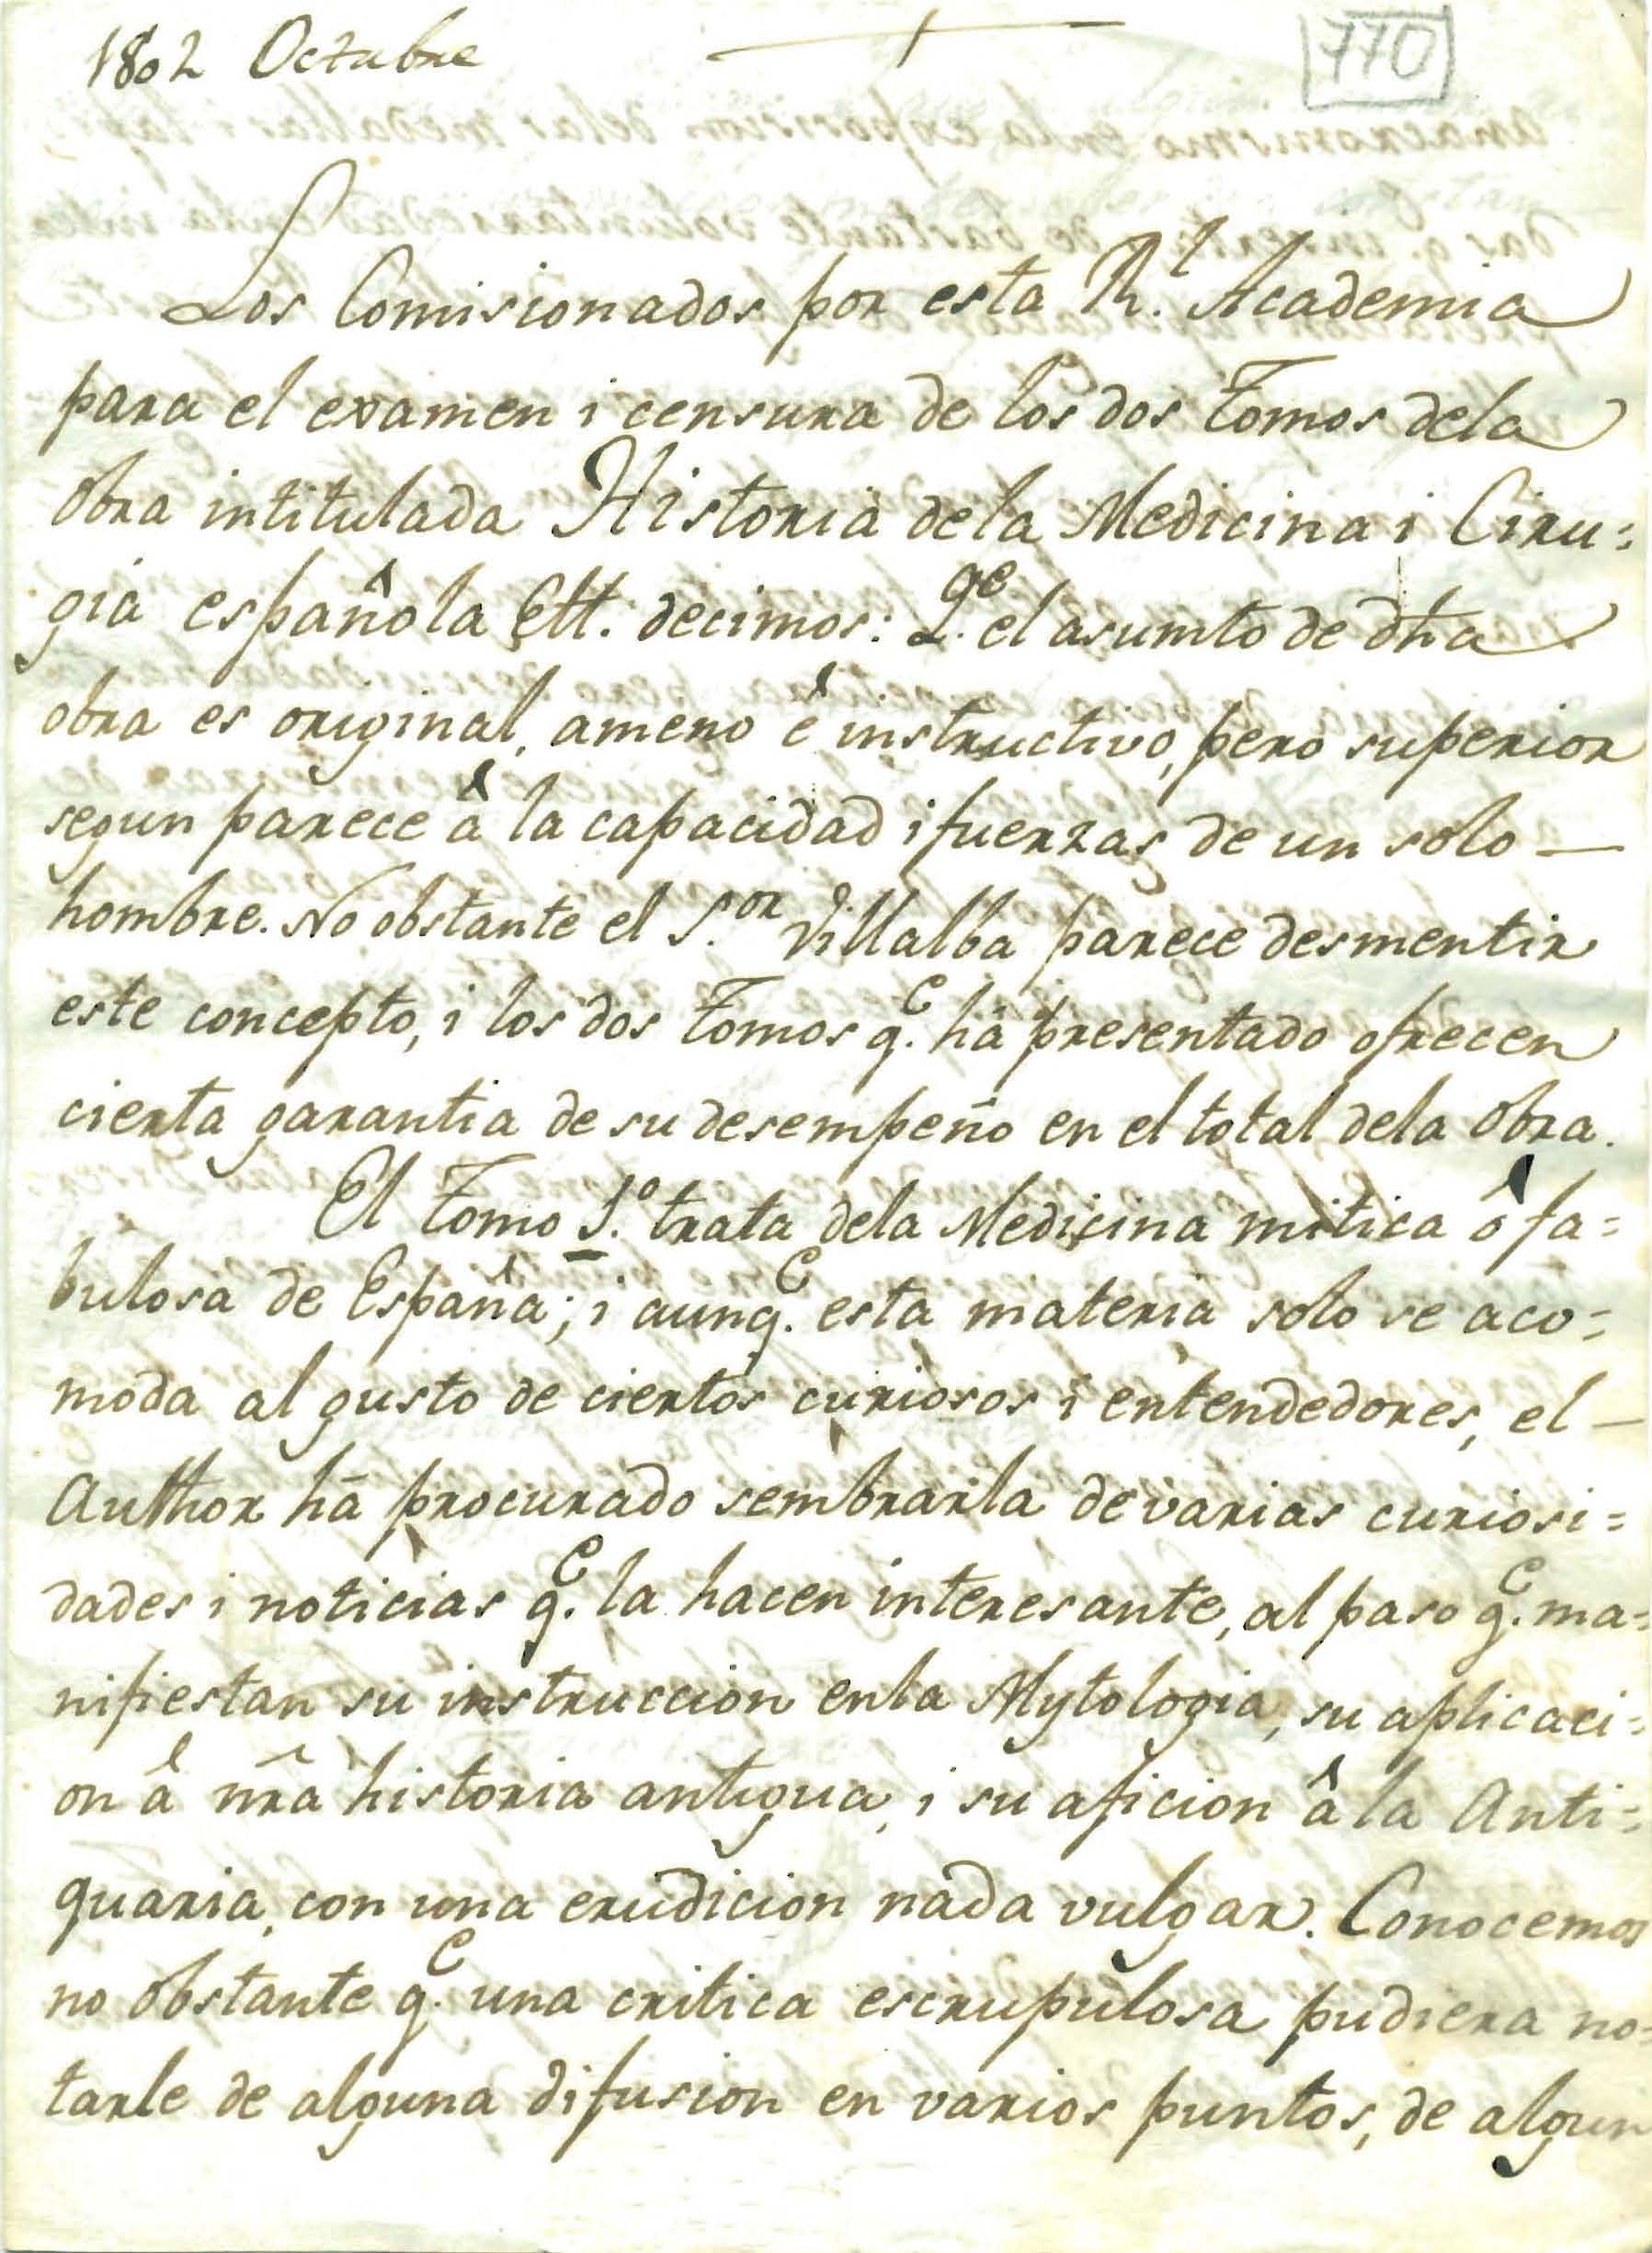 1802 Octubre
770
Los Comisionados por esta R.l Academia
para el examen i censura de los dos Tomos dela
obra intitulada Historia dela Medicina i Ciru=
gia española Ett. decimos: Q.e el asumto de dha
obra es original, ameno é instructivo, pero superior
segun parece â la capacidad i fuerzas de un solo —
hombre. No obstante el S.or Villalba parece desmentir
este concepto, i los dos Tomos q.e hà presentado ofrecen
cierta garantia de su desempeño en el total dela obra.
El Tomo 1.o trata dela Medicina mitica ô fa=
bulosa de España; i aunq.e esta materia solo se aco=
moda al gusto de ciertos curiosos i entendedores, el —
Author hà procurado sembrarla de varias curiosi=
dades i noticias q.e la hacen interesante, al paso q.e ma=
nifiestan su instruccion enla Mytologia, su aplicaci=
on â ñra historia antigua, i su aficion â la Anti=
quaria, con una erudicion nada vulgar. Conocemos
no obstante q.e una critica escrupulosa pudiera no=
tarle de alguna difusion en varios puntos, de algun